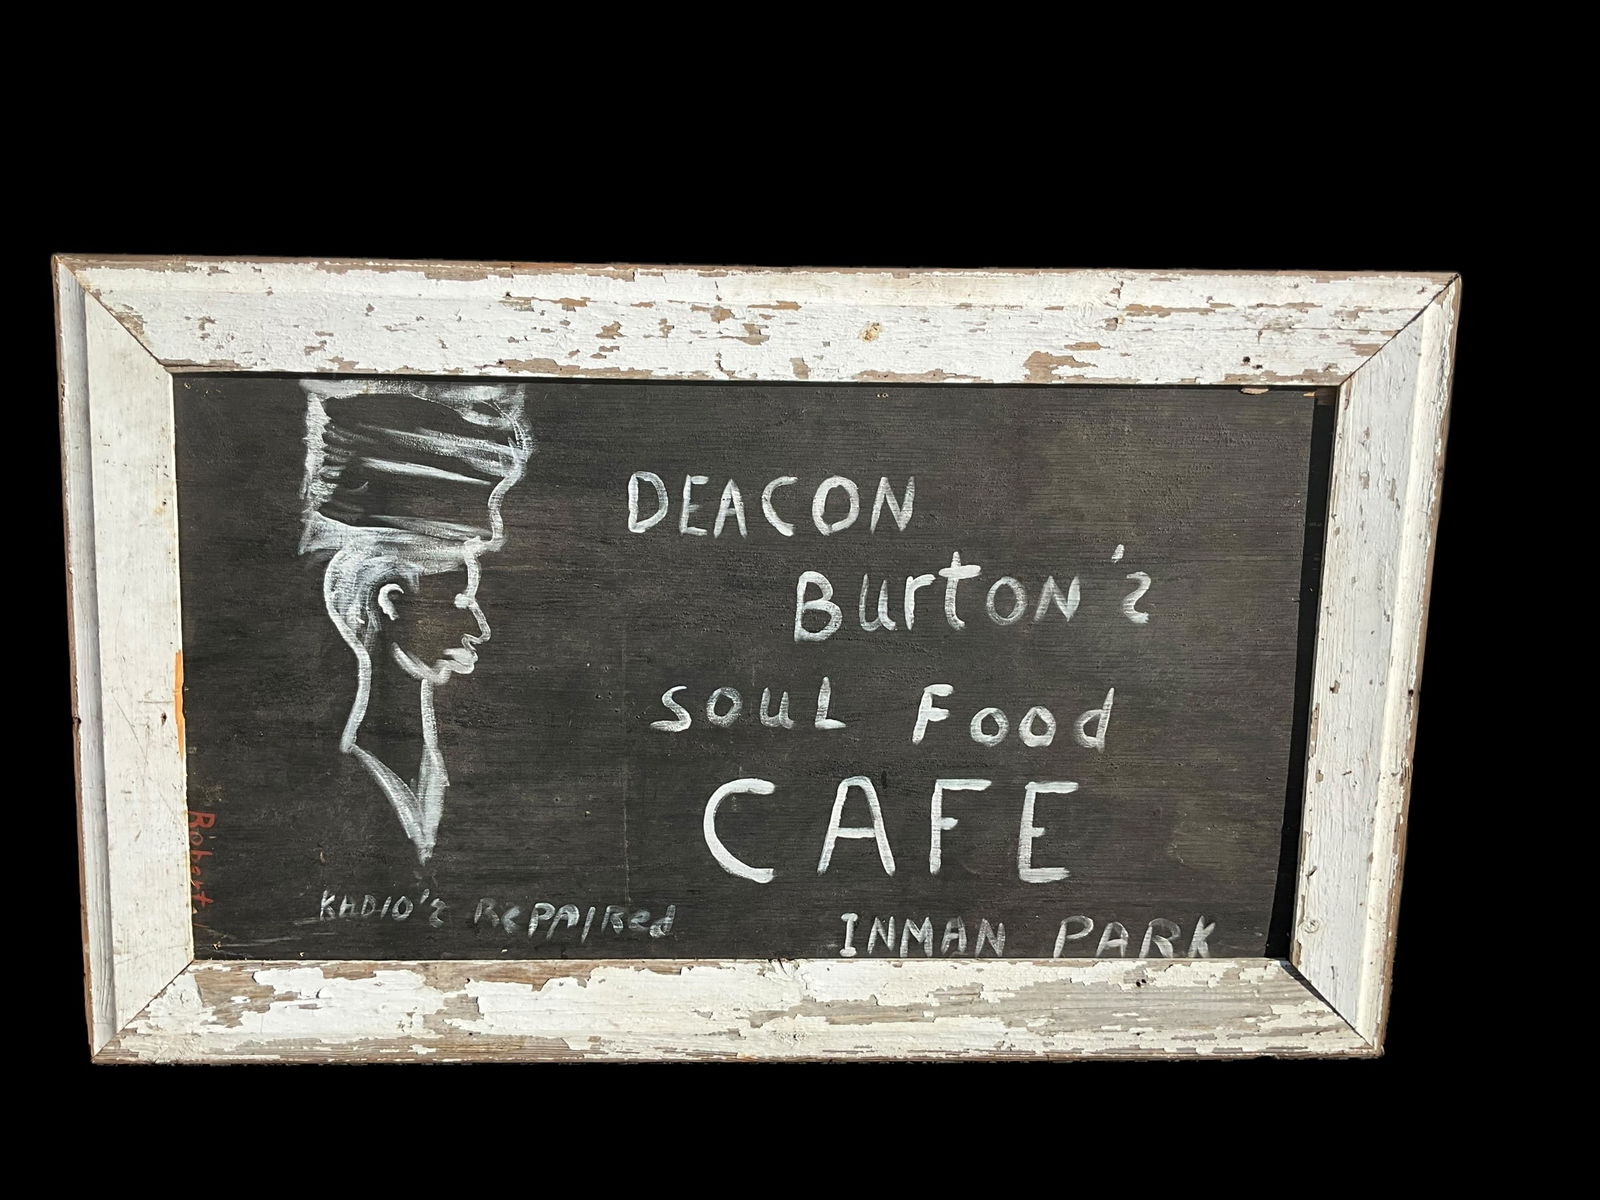 DEACON
Burton's
SOUL Food
CAFE
RADIO's RePAIRed
INMAN PARK
Robert